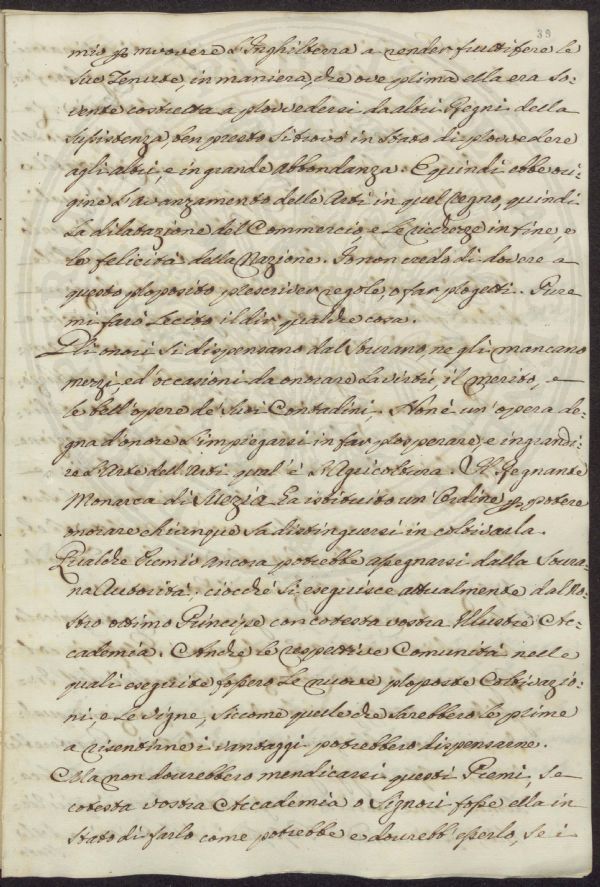 39
mio p muovere l'Inghilterra a render fruttifere le
sue Tenute, in maniera, che ove prima ella era so-
vente costretta a provvedersi da altri Regni della
susistenza, ben presto si trovò in stato di provvedere
agli altri, e in grande abbondanza. E quindi ebbe ori-
gine l'avanzamento delle Arti in quel Regno, quindi
la dilatazione del Commercio, e le ricchezze in fine, e
le felicità della Nazione. Io non credo di dovere a
questo proposito prescriver regole, o far progetti. Pure
mi farò lecito il dir qualche cosa.
Gli onori si dispensano dal Sovrano, ne gli mancano
mezzi, ed'occasioni da onorare la virtù, il merito, e
le bell'opere de' suoi Contadini. Non è un'opera de-
gna d'onore l'impiegarsi in far prosperare, e ingrandi-
re l'Arte dell'Arti qual'è l'Agricoltura. Il Regnante
Monarca di Suezia ha istituito un'Ordine p potere
onorare chiunque sa distinguersi in coltivarla.
Qualche Premio ancora potrebbe asegnarsi dalla Sovra-
na Autorità, ciocchè si eseguisce attualmente dal No-
stro ottimo Principe con cotesta vostra Illustre Ac-
cademia. Anche le respettive Comunità nelle
quali eseguite fossero le nuove proposte Coltivazio-
ni, e le Vigne, siccome quelle che sarebbero le prime
a risentirne i vantaggi potrebbero dispensarne.
Ma non dovrebbero mendicarsi questi Premi, se
cotesta vostra Accademia o Signori fosse ella in
stato di farlo come potrebbe e dovrebb'esserlo, se i-